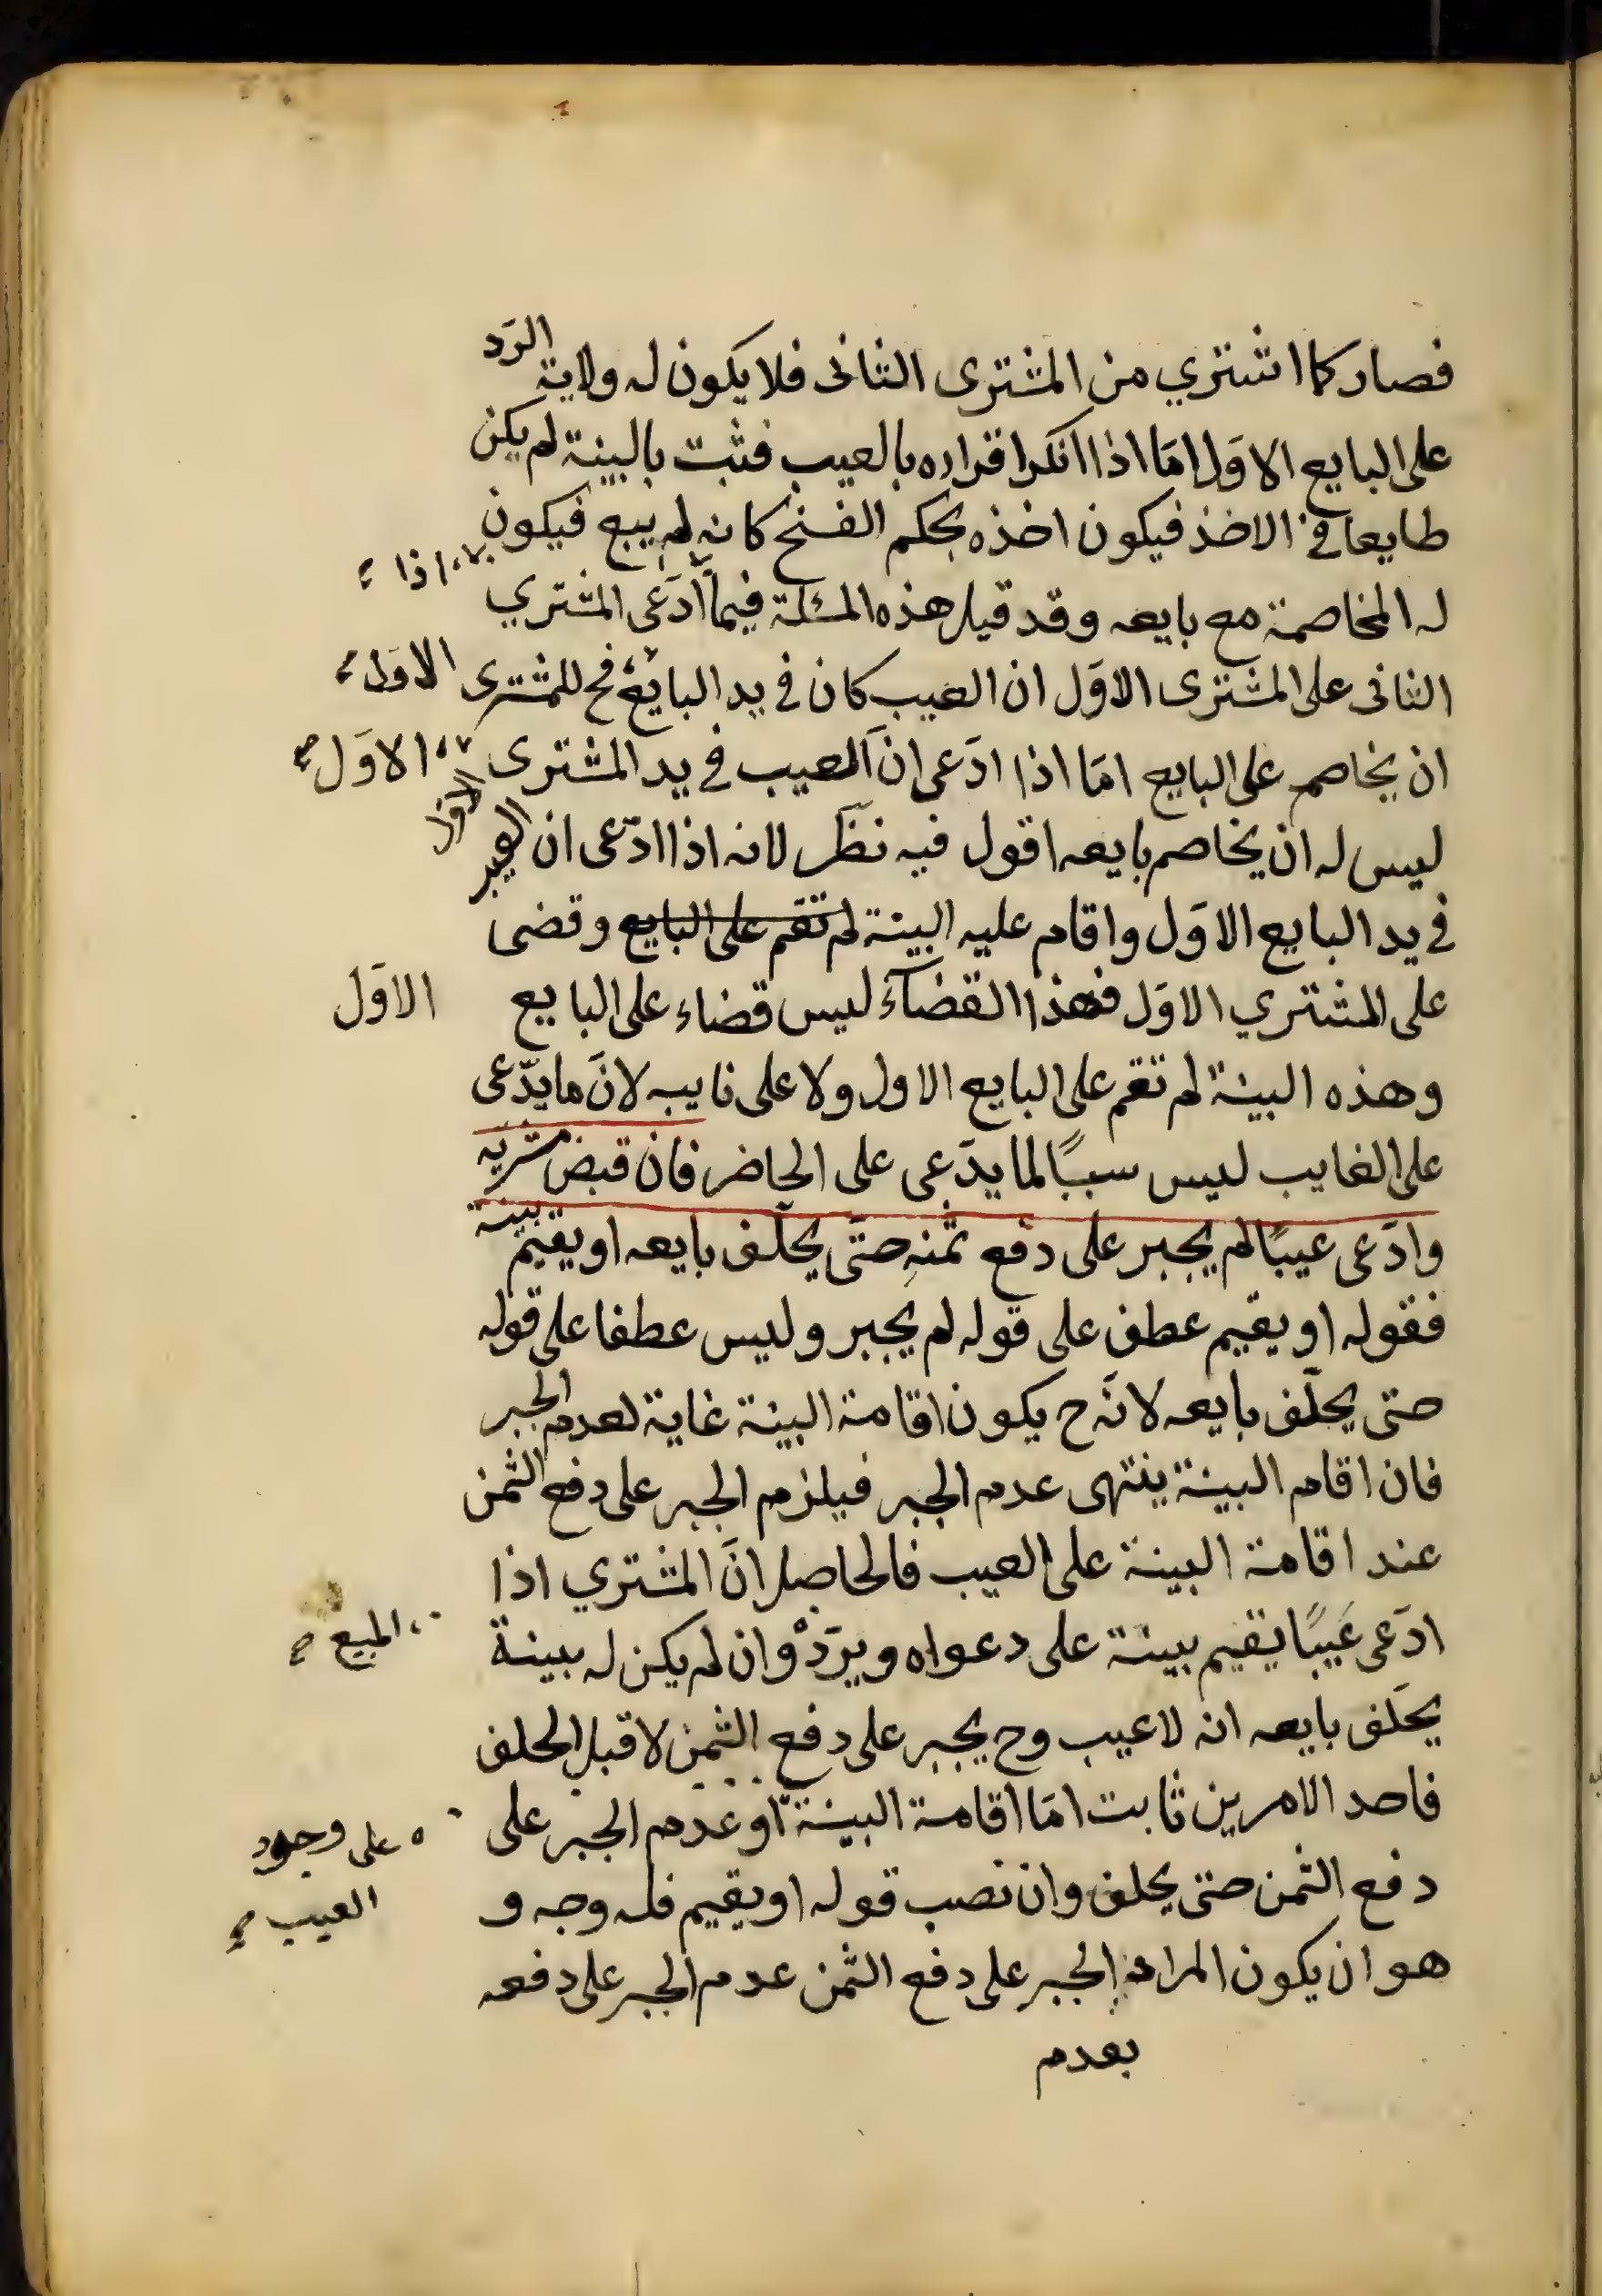 فصار كما اشتري من المشترى الثانى فلا يكون له ولاية الرّد
على البايع الاوّل امّا اذا انكر اقراره بالعيب فثبت بالبينة لم يكن
طايعا فى الاخذ فيكون اخذه بحكم الفسخ كانه لم يبع فيكون
له المخاصمة مع بايعه وقد قيل هذه المسئلة فيما ادّعى المشتري
اذا
الثانى على المشترى الاوّل ان العيب كان فى يد البايع فح للمشترى
الاوّل
ان يخاصم على البايع امّا اذا ادّعى انّ العيب فى يد المشترى
الاوّل
ليس له ان يخاصم بايعه الاول اقول فيه نظر لانه اذا ادّعى ان العيب
فى يد البايع الاوّل واقام عليه البينة لم تقم على البايع وقضى
على المشتري الاوّل فهذا القضآء ليس قضاء على البايع
الاوّل
وهذه البينة لم تقم على البايع الاول ولا على نايبه لانّ ما يدّعى
على الغايب ليس سببًا لما يدّعى على الحاضر فان قبض مشريّه
وادّعى عيبًا لم يجبر على دفع ثمنهِ حتّى يحلّف بايعه او يقيم بينة
فقوله او يقيم عطف على قوله لم يجبر وليس عطفا على قوله
حتى يحلّف بايعه لانّه ح يكون اقامة البينة غاية لعدم الجبر
فان اقام البينة ينتهى عدم الجبر فيلزم الجبر على دفع الثمن
عند اقامة البينة على العيب فالحاصل انّ المشتري اذا
ادّعى عَيبًا يقيم بينة على دعواه ويردّ وان لم يكن له بينة
المبيع
يحَلف بايعه انه لاعيب وح يجبر على دفع الثمن لا قبل الحلف
فاحد الامرين ثابت امّا اقامة البينة او عدم الجبر على
على وجود
العيب
دفع الثمن حتى يحلف وان نصب قوله او يقيم فله وجه و
هو ان يكون المراد الجبر على دفع الثمن عدم الجبر على دفعه
بعدم